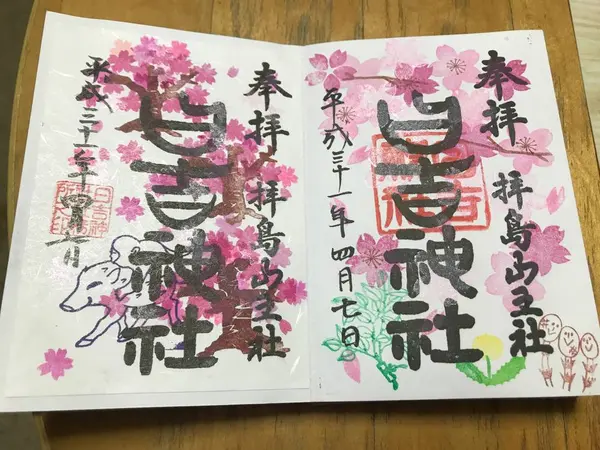 奉拝 拝島山王社
日吉神社
平成三十一年四月七日
奉拝 拝島山王社
日吉神社
平成三十一年四月七日